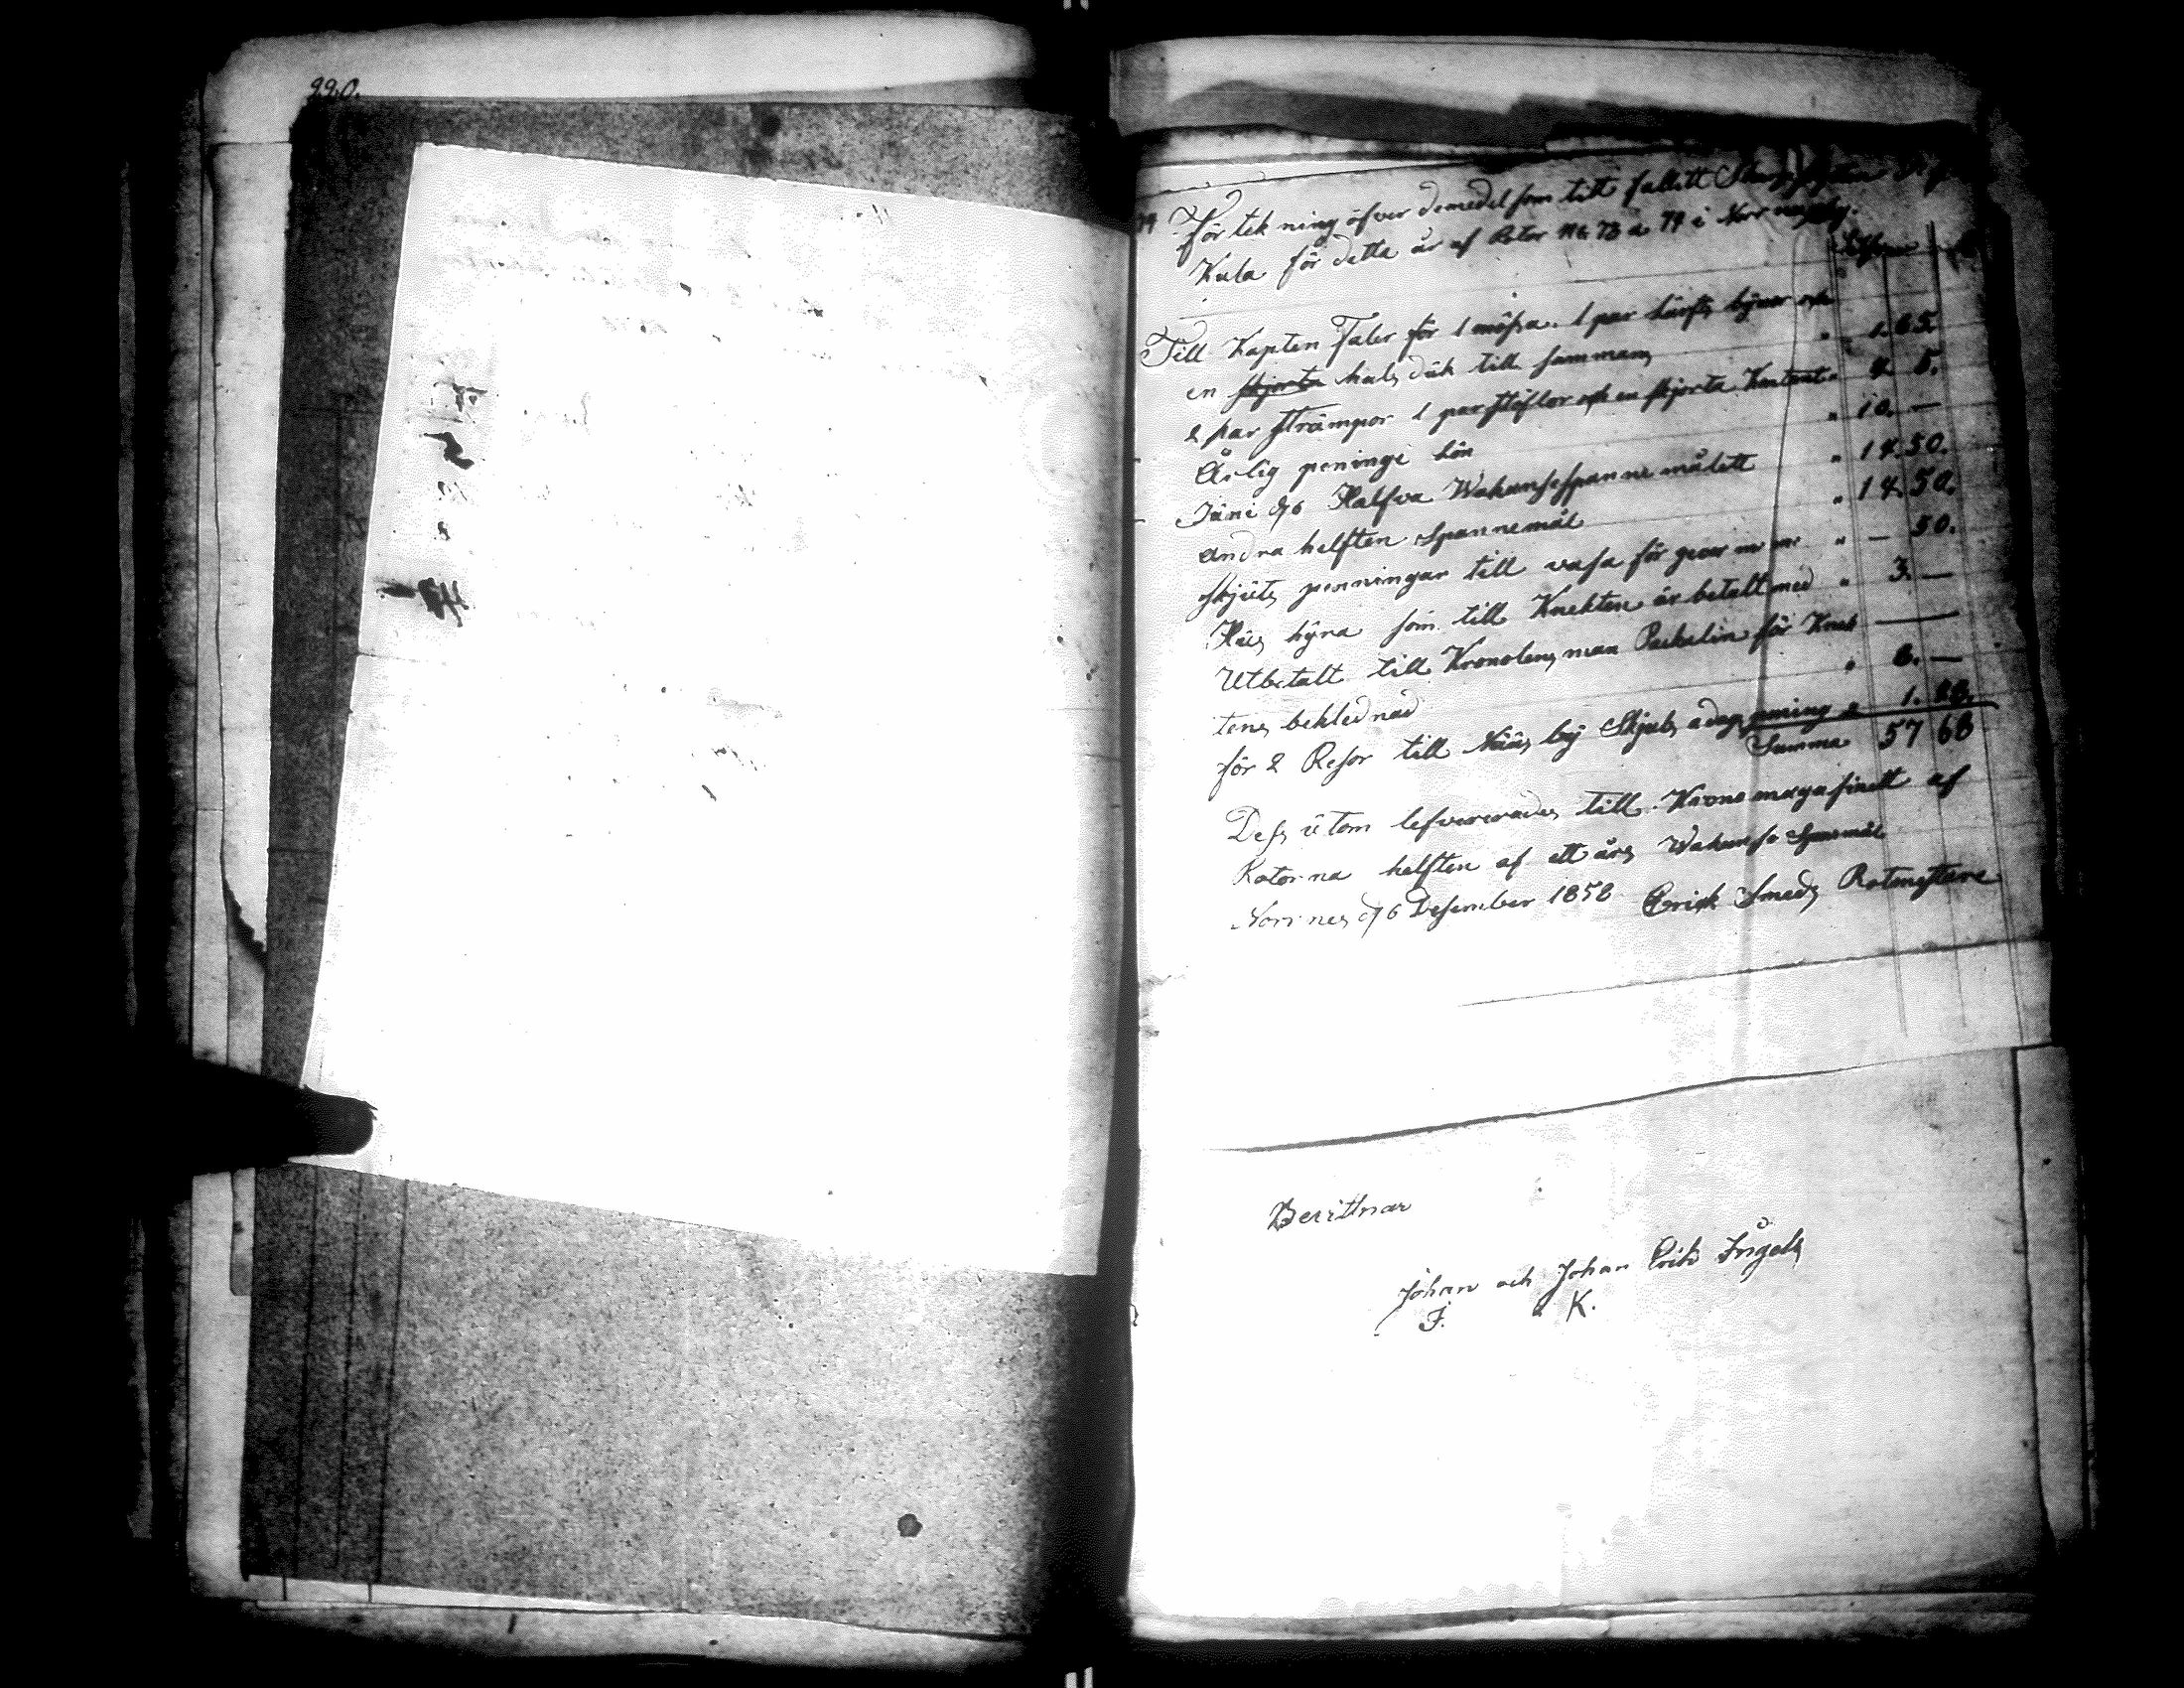 220.
Förtekning öfver demedel som titt fallitt
Kula för detta år af Rotor No 73 a 74 i Norrnäs by.
Till Kapten Taler för 1 mössa. 1 par
en skjorta hals dúk till sammans " 1. 65.
2 par strämpor 1 par stöflor och en skjorta Kontant " 4 5.
Årlig peninge lön " 10. —
Júni d 6 Halfva Wakansespannemålett " 14. 50.
andra helften spannemål " 14. 50.
skjúts penningar till vasa för " — 50.
Hús hÿra som till Knekten är betalt med " 3. —
Utbetalt till Kronolensman för Knek
tens beklednad " 8. —
för 2 Resor till Näs bÿ Skjuts 1. 48.
Summa 57 68
Dess útom lefvererades till Krono magasinett af
Rotorna helften af ett års Wakanse Spanmål
Norrnes d 6 Desember 1858 Erick Smeds Rotmestare
Berittnar
Johan och Johan Erik Ingels
J. & K.